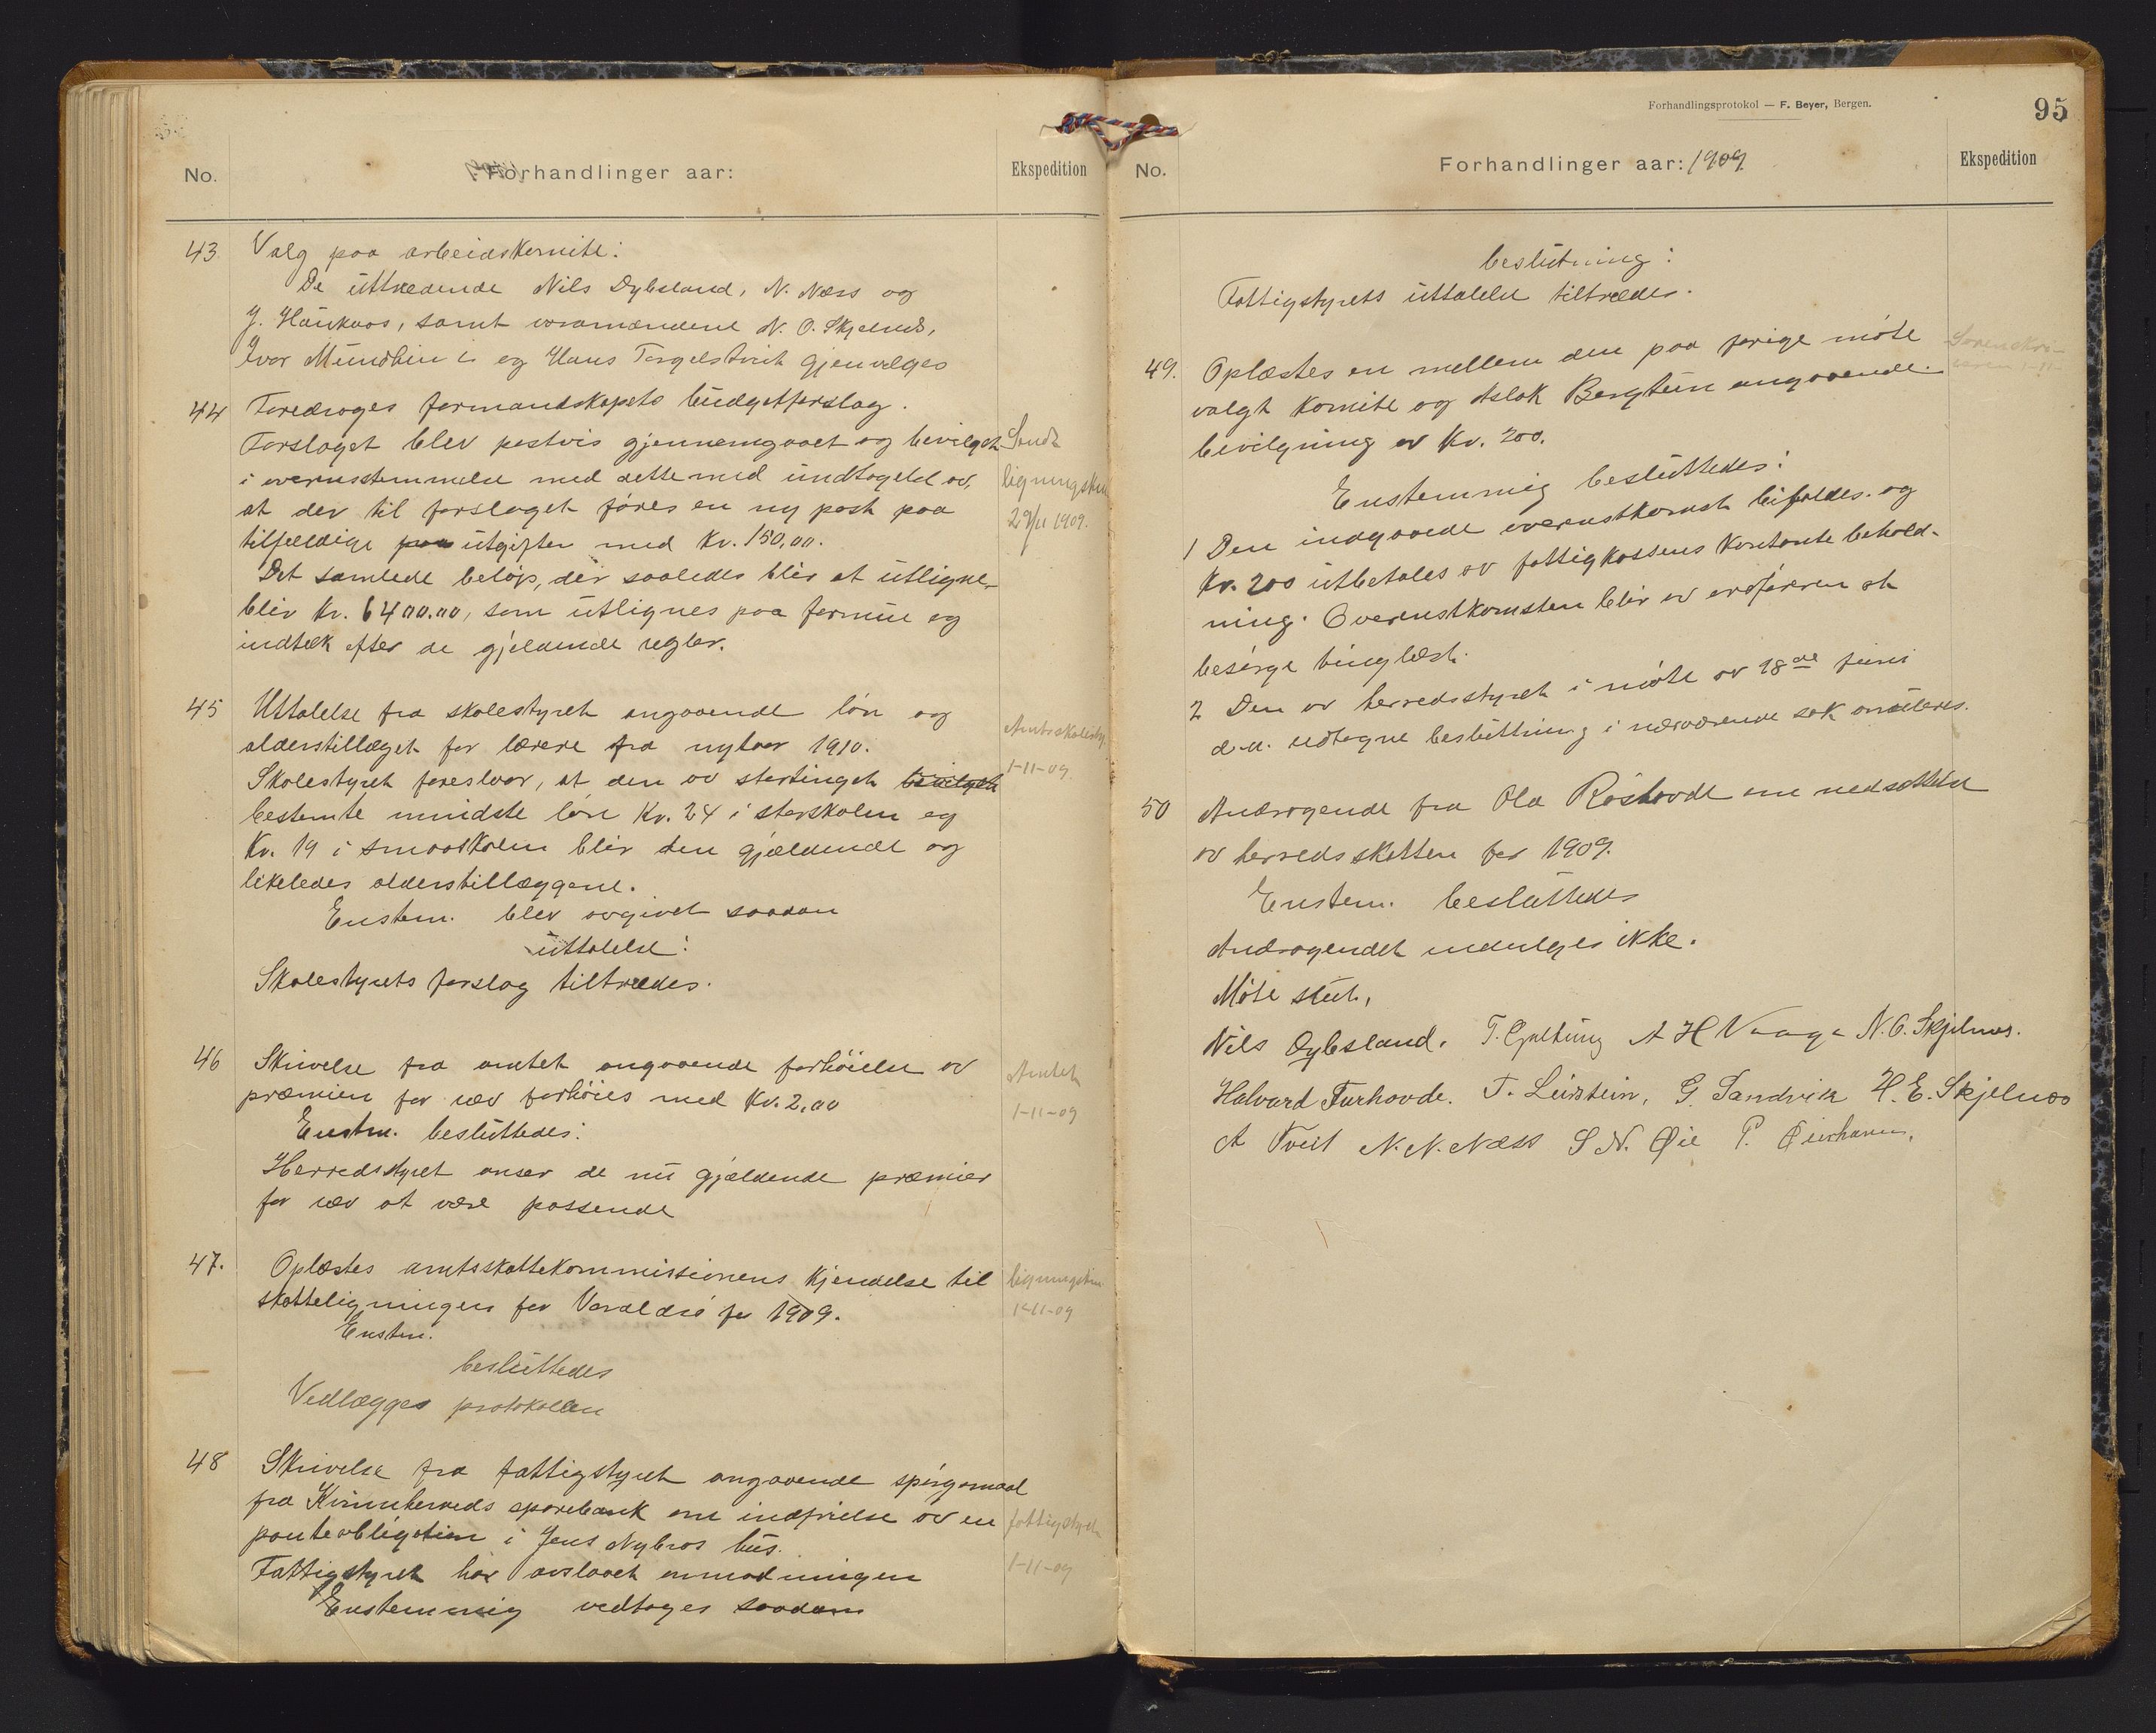 No.
Forhandlinger aar:
Ekspedition
43. Valg paa arbeidskomite:
De uttrædende Nils Dybsland, N. Næss og
J. Haukaas, samt varamændene N. O. Skjelnes,
Ivar Mundhein og Hans Torgelstveit gjenvælges
44 Foredroges formandskapets budgetforslag.
Forslaget blev postvis gjennemgaaet og bevilget
i overensstemmelse med dette med undtagelse av,
at der til forslaget føres en ny post paa
tilfældige paa utgifter med Kr. 150,00.
Det samlede beløp, der saaledes blir at utligne
blir Kr. 6400.00, som utlignes paa formue og
indtæk efter de gjeldende regler.
Sendt
ligningskom
29/11 1909.
45 Uttalelse fra skolestyret angaaende løn og
alderstillæget for lærere fra nytaar 1910.
Skolestyret foreslaar, at den av stortinget bevilgete
bestemte mindste løn Kr. 24 i storskolen og
Kr. 19 i smaaskolen blir den gjældende og
likeledes alderstillæggene.
Enstem. blev avgivet saadan
uttalelse:
Skolestyrets forslag tiltrædes.
Amtsskolesty.
1-11-09.
46 Skrivelse fra amtet angaaende forhøielse av
præmien for ræv forhøies med Kr. 2,00
Enstm. besluttedes:
Herredsstyret anser de nu gjældende præmier
for ræv at være passende
Amtet
1-11-09
47. Oplæstes amtsskattekommissionens Kjendelse til
skatteligningen for Varaldsø for 1909.
Enstm.
besluttedes
Vedlægges protokollen
ligningskom
1-11-09
48 Skrivelse fra fattigstyret angaaende spørgsmaal
fra Kvinnherreds sparebank om indfrielse av en
panteobligation i Jens Nybros hus.
Fattigstyret har avslaaet anmodningen
Enstemmig vedtages saadan
fattigstyret
1-11-09
Forhandlingsprotokol — F. Beyer, Bergen.
95
No.
Forhandlinger aar: 1909.
Ekspedition
beslutning:
Fattigstyrets uttalelse tiltrædes.
49. Oplæstes en mellem den paa forige møte
valgt komite og Aslak Bergtun angaaende
bevilgning av Kr. 200.
Enstemmig besluttedes:
1 Den indgaaede overenstkomst bifaldes og
Kr. 200 utbetales av fattigkassens kontante behold-
ning. Overenstkomsten blir av ordføreren at
besørge tinglæst.
2 Den av herredsstyret i møte av 18de juni
d.a. vedtagne beslutning i nærværende sak anuleres.
Sorenskri-
50 Andragende fra Ola Røshovde om nedsættelse
av herredsskatten for 1909.
Enstem. besluttedes
Andragendet indvilges ikke.
Møte slut.
Nils Dybsland. T. Gjøthung A H Vaage N. O. Skjelnes.
Halvard Furhovde. T. Leirstein, G. Sandvik H. E. Skjelnes
A Tveit N. N. Næss S N. Øie P.